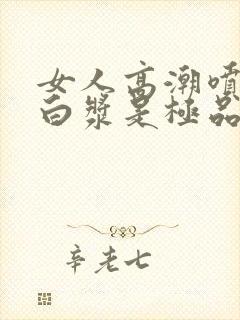 女人高潮喷
白浆是极品
辛老七